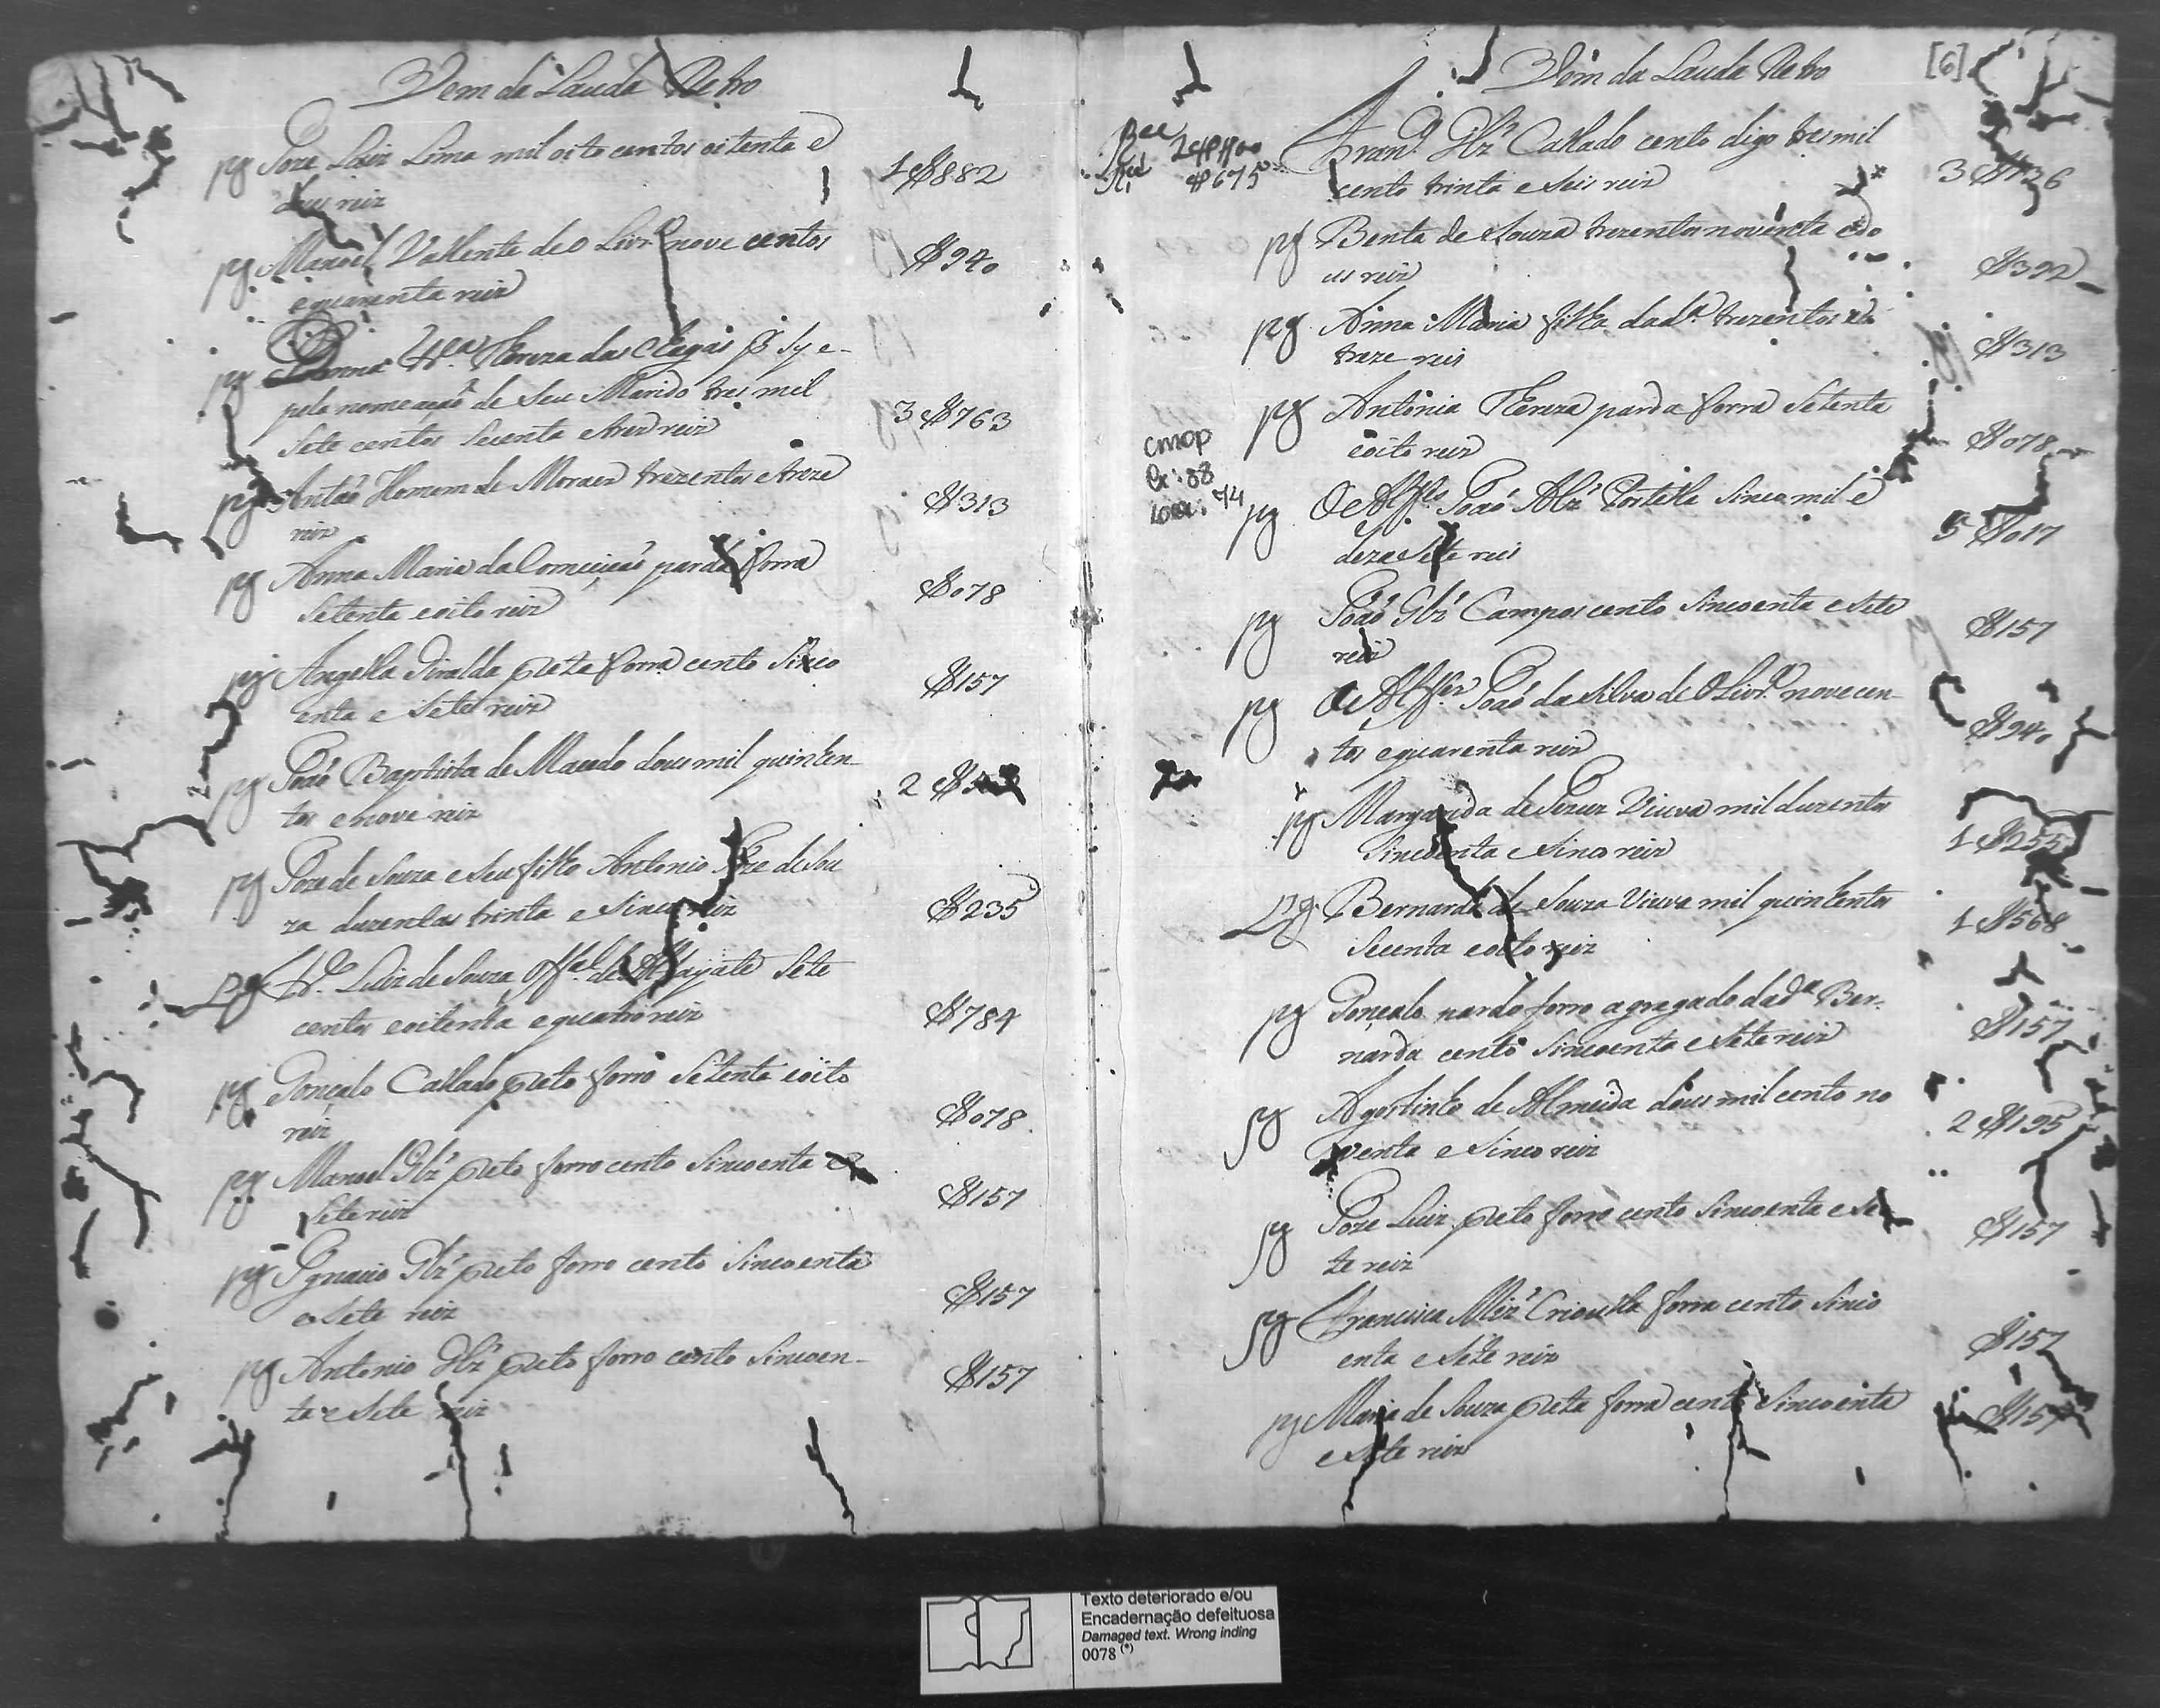 Vem da Lauda Retro
pg Joze Luiz Lima mil oito centos oitenta e
dous reiz
1$882
pg Manoel Vallente de Olivr.ª nove centos
e quarenta reiz
$940
pg Thereza das Chagas p.r sy e
pela nomeaçaõ de Seu Marido tres mil
Sete centos Secenta e trez reiz
3$763
pg Antaõ Homem de Moraes trezentos e treze
reiz
$313
pg Anna Maria da Conceiçaõ parda forra
Setenta e oito reiz
$078
pg Angella Giralda preta forra cento Sinco
enta e Sete reiz
$157
pg Joaõ Baptista de Macedo dous mil quinhen
tos e nove reiz
2$
pg Joze de Souza e Seu filho Antonio Joze de Sou
za duzentos trinta e Sinco reiz
$235
pg Luiz de Souza Off.al de Alfayate Sete
centos e oitenta e quatro reiz
$784
pg Gonçalo Callado preto forro Setenta e oito
reiz
$078
pg Manoel Glz' preto forro cento Sincoenta e
Sete reiz
$157
pg Ignacio Glz' preto forro cento Sincoenta
e Sete reiz
$157
pg Antonio Glz' preto forro cento Sincoen
ta e Sete reiz
$157
Vem da Lauda Retro
[6]
$675
Fran.co Glz' Callado cento digo tres mil
cento trinta e Seis reiz
3$136
pg Benta de Souza trezentos noventa e do
us reiz
$392
pg Anna Maria filha da d.ª trezentos e
treze reis
$313
pg Antonia Thereza parda forra Setenta
e oito reiz
$078
CMOP
Cx: 88
Doc: 74
pg O Alfes Joaõ Alz' Portella Sinco mil e
dezaSete reis
5$017
pg Joaõ Glz' Campos cento Sincoenta e Sete
reiz
$157
pg O Alferes Joaõ da Silva de Olivr.ª nove cen
tos e quarenta reiz
$940
pg Margarida de Viuva mil duzentos
Sincoenta e Sinco reiz
1$255
pg Bernarda de Souza Viuva mil quinhentos
Secenta e oito reiz
1$568
pg Gonçalo pardo forro agregado da d.ª Ber
narda cento Sincoenta e Sete reiz
$157
pg Agostinho de Almeida dous mil cento no
venta e Sinco reiz
2$195
pg Joze Luiz preto forro cento Sincoenta e Se
te reiz
$157
pg Francisca Crioulla forra cento Sinco
enta e Sete reiz
$157
pg Maria de Souza preta forra cento Sincoenta
e Sete reiz
$157
Texto deteriorado e/ou
Encadernação defeituosa
Damaged text. Wrong inding
0078 (*)